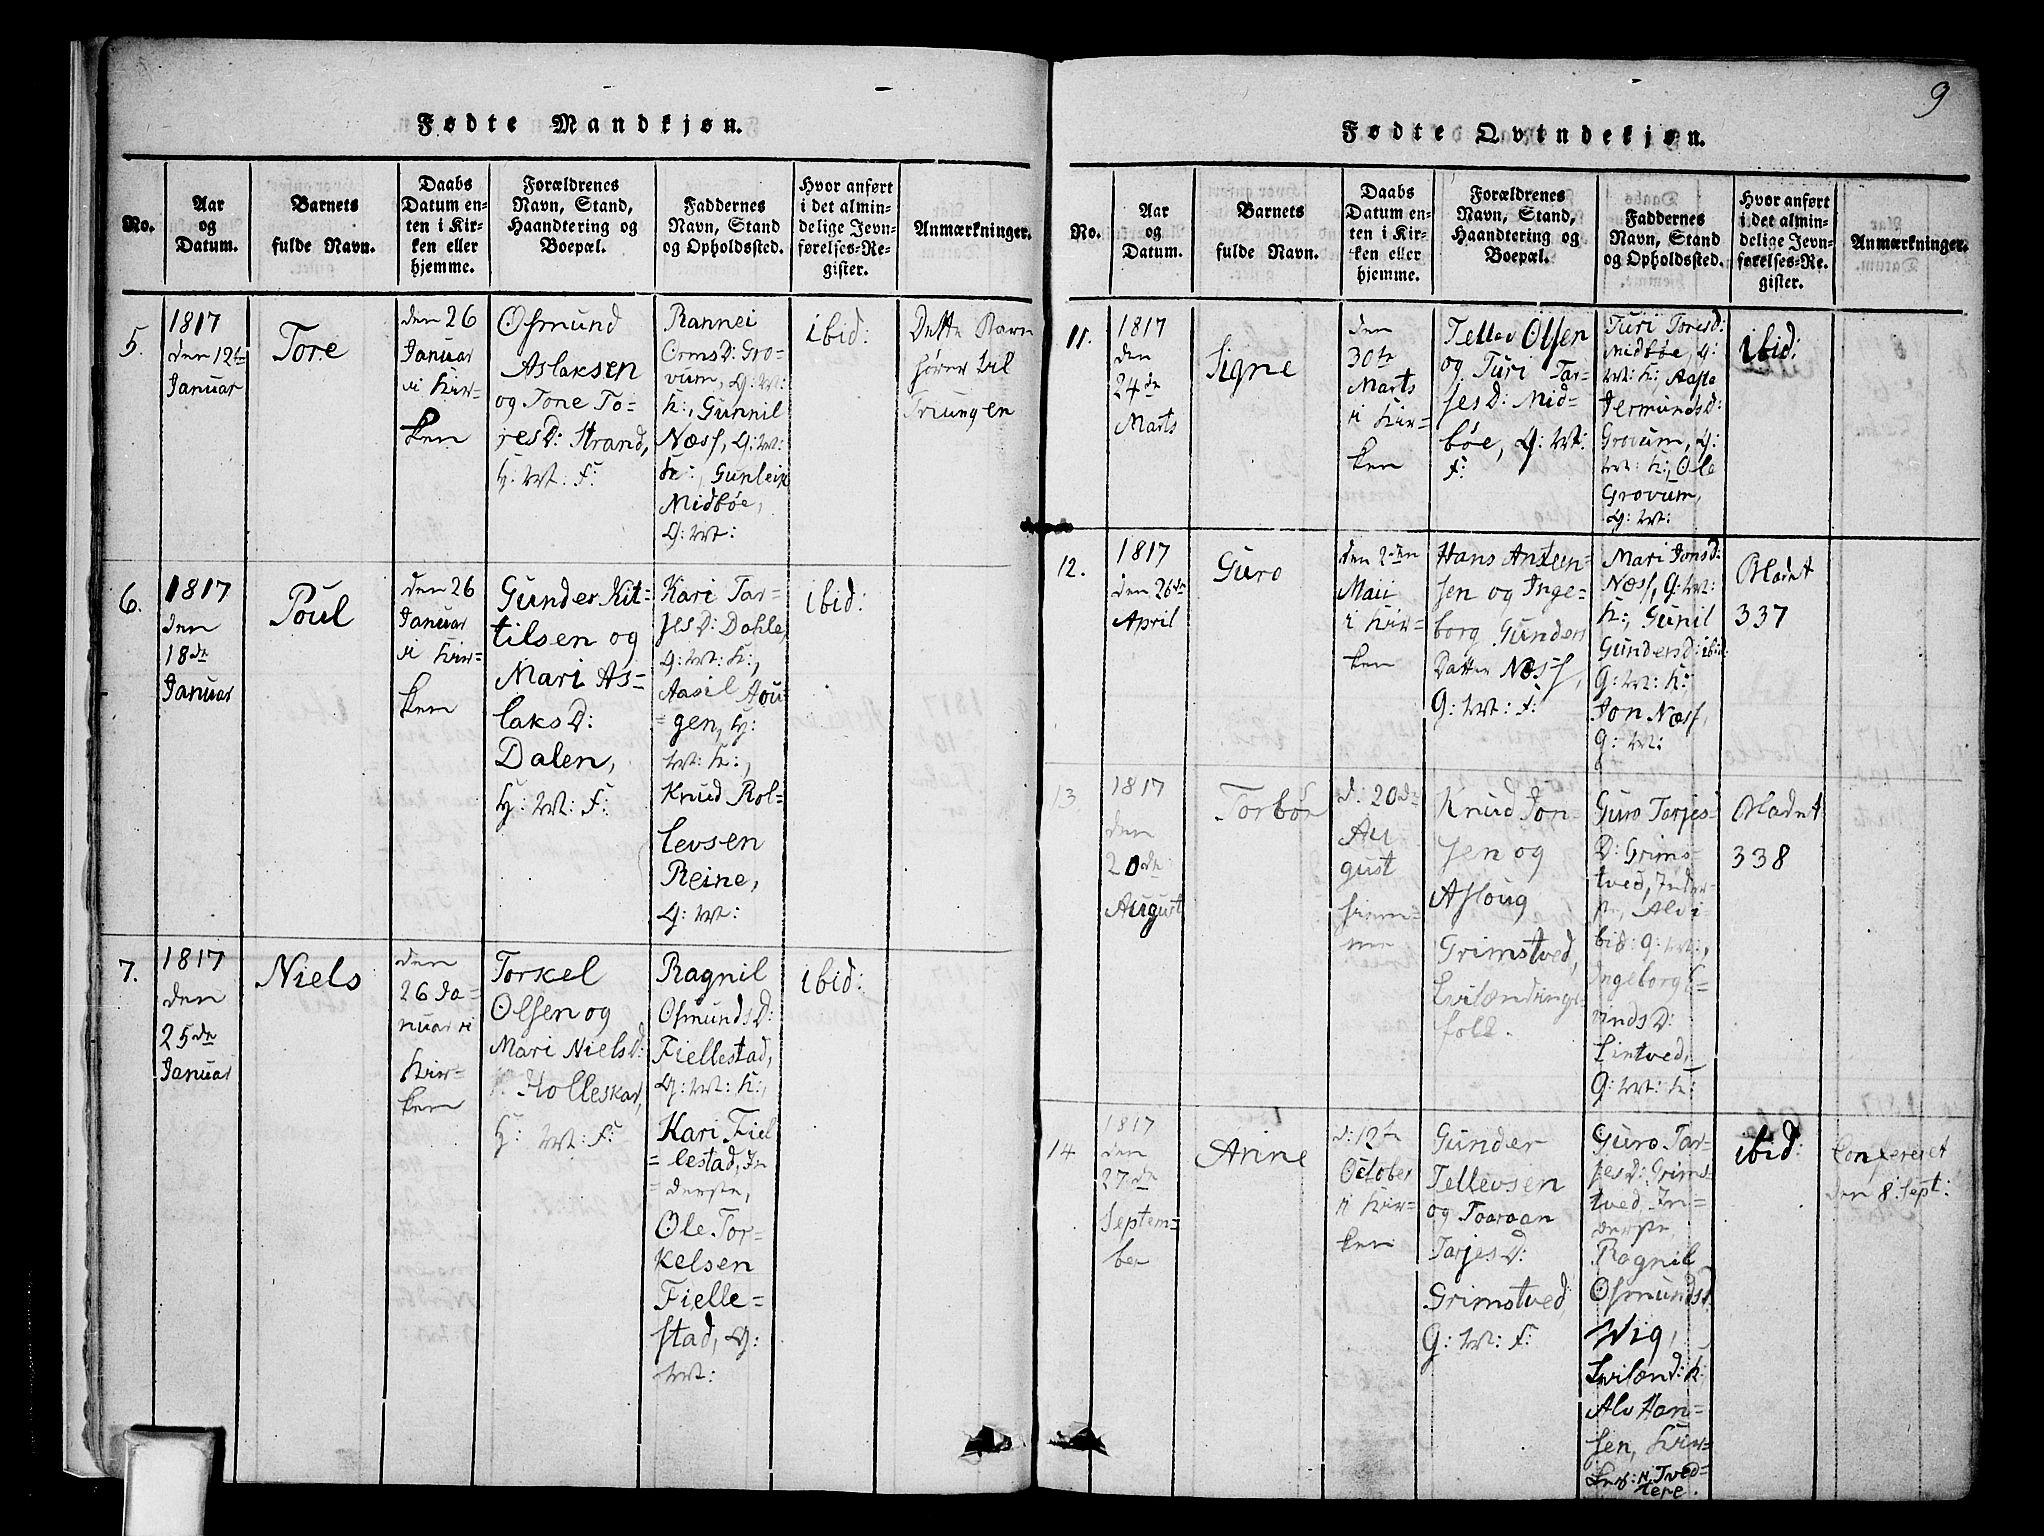 Fødte Mandkjøn.
No.
Aar
og
Datum.
Barnets
fulde Navn.
Daabs
Datum en-
ten i Kir-
ken eller
hjemme.
Forældrenes
Navn, Stand,
Haandtering og
Boepæl.
Faddernes
Navn, Stand
og Opholdssted.
Hvor anført
i det almin-
delige Jevn-
førelses-Re-
gister.
Anmærkninger.
5.
1817
den 12te
Januar
Tore
den 26
Januar
i Kir-
ken
Osmund
Aslaksen
og Tone To-
resD: Strand,
Rannei
OrmsD: Gro-
vum, G: :
K:, Gunnil
Næss, G: :
K:, Gunleik
Midbøe,
ibid:
Dette Barn
hører til
Triungen
6.
1817
den
18de
Januar
Poul
den 26
Januar
i Kir-
ken
Gunder Kit-
tilsen og
Mari As-
laksD:
Dalen,
Kari Tar-
jesD: Dahle,
Aasil Hou-
gen,
Knud Rol-
levsen
Reine,
ibid:
7.
1817
den
25de
Januar
Niels
den
26 Ja-
nuar i
Kir-
ken
Torkel
Olsen og
Mari NielsD:
Holleskar,
Ragnil
OsmundsD:
Fiellestad,
Kari Fiel
=lestad, In
=derste,
Ole Tor-
kelsen
Fielle=
stad,
ibid:
9
Fødte Qvindekjøn.
No.
Aar
og
Datum.
Barnets
fulde Navn.
Daabs
Datum en-
ten i Kir-
ken eller
hjemme.
Forældrenes
Navn, Stand,
Haandtering og
Boepæl.
Faddernes
Navn, Stand
og Opholdssted.
Hvor anført
i det almin-
delige Jevn-
førelses-Re-
gister.
Anmærkninger.
11.
1817
den
24de
Marts
Signe
den
30te
Marts
i Kir-
ken
Tellev Olsen
og Turi Tar-
jesD: Mid-
bøe,
Turi ToresD:
Midbøe, G:
K:, Aaste
JermundsD:
Grovum, G:
K:, Ole
Grovum,
ibid:
12.
1817
den 26de
April
Guro
den 2den
Maii
i Kir-
ken
Hans Ansten-
sen og Inge-
borg Gunders
Datter Næss,
Mari JonsD:
Næss,
K:, Gunil
GundersD: ibid:
Jon Næss,
Bladet
337
13.
1817
den
20de
August
Torbør
d: 20de
Au
gust
hiem-
me
Knud Jon
sen og
Asloug
Grimstved,
folk.
Guro Tarjes
D: Grims-
tved, Inder-
ste, Alv i-
bid:
Ingeborg E-
Lintved,
Bladet
338
14
1817
den
27de
Septem-
ber
Anne
d: 12te
October
i Kir-
ken
Gunder
Tellevsen
og Taaraan
TarjesD:
Grimstved
Guro Tar-
jesD: Grims-
tved, In-
derste,
Ragnil
OsmundsD:
Wig,
Alv Han-
sen, Kir-
N. Tved-
tere.
ibid:
Confereret
den 8 Sept: